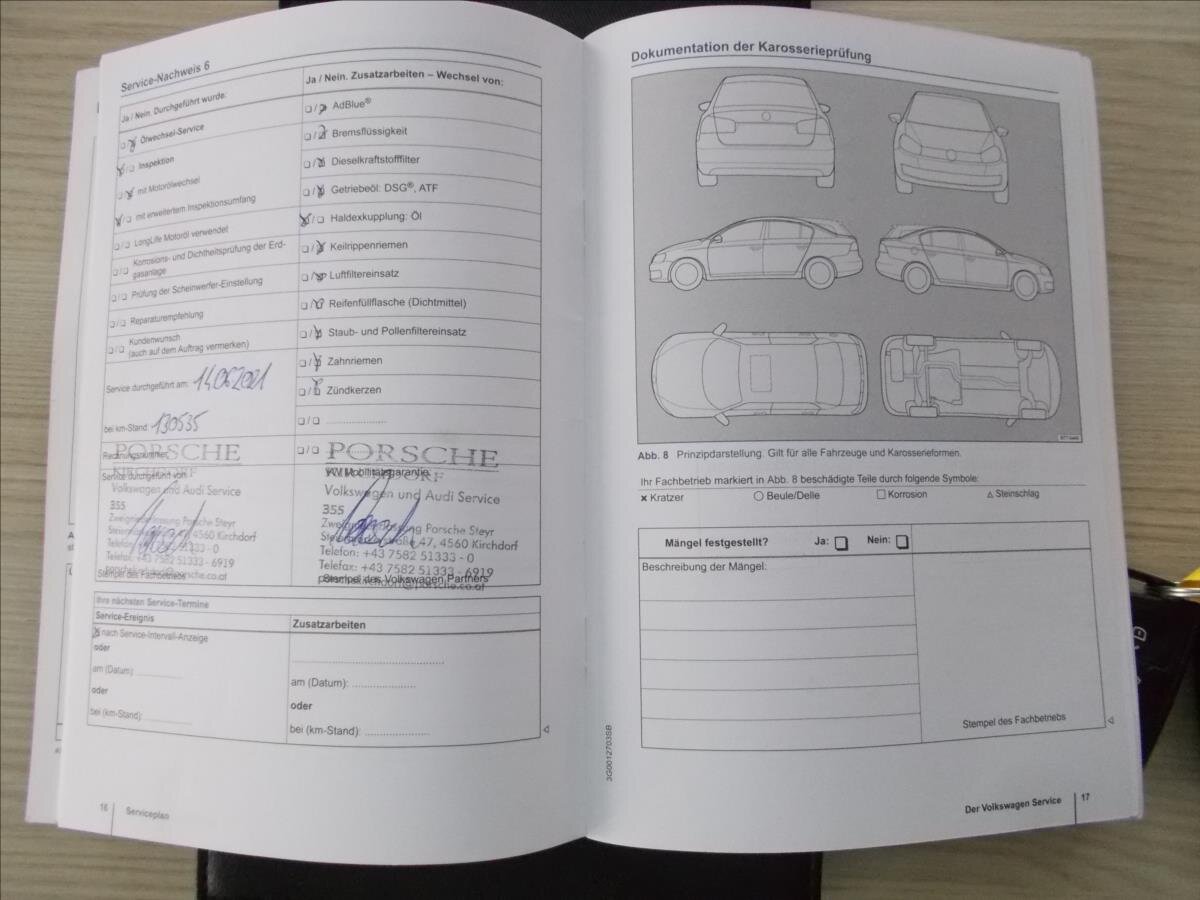 Service-Nachweis 6
Ja / Nein. Durchgeführt wurde:
Ölwechsel-Service
Inspektion
mit Motorölwechsel
mit erweitertem Inspektionsumfang
LongLife Motoröl verwendet
Korrosions- und Dichtheitsprüfung der Erd-
gasanlage
Prüfung der Scheinwerfer-Einstellung
Reparaturempfehlung
Kundenwunsch
(auch auf dem Auftrag vermerken)
Service durchgeführt am: 14.06.2021
bei km-Stand: 130535
Rechnungsnummer:
PORSCHE
KIRCHDORF
Service durchgeführt von:
Volkswagen und Audi Service
355
Zweigniederlassung Porsche Steyr
4560 Kirchdorf
51333 - 0
Telefax: +43 7582 51333 - 6919
Stempel des Fachbetriebs
Ja / Nein. Zusatzarbeiten – Wechsel von:
AdBlue®
Bremsflüssigkeit
Dieselkraftstofffilter
Getriebeöl: DSG®, ATF
Haldexkupplung: Öl
Keilrippenriemen
Luftfiltereinsatz
Reifenfüllflasche (Dichtmittel)
Staub- und Pollenfiltereinsatz
Zahnriemen
Zündkerzen
PORSCHE
VW Mobilitätsgarantie
Volkswagen und Audi Service
355
Porsche Steyr
47, 4560 Kirchdorf
Telefon: +43 7582 51333 - 0
Telefax: +43 7582 51333 - 6919
Stempel des Volkswagen Partners
Ihre nächsten Service-Termine
Service-Ereignis
nach Service-Intervall-Anzeige
oder
am (Datum):
oder
bei (km-Stand):
Zusatzarbeiten
am (Datum):
oder
bei (km-Stand):
16 Serviceplan
Dokumentation der Karosserieprüfung
Abb. 8 Prinzipdarstellung. Gilt für alle Fahrzeuge und Karosserieformen.
Ihr Fachbetrieb markiert in Abb. 8 beschädigte Teile durch folgende Symbole:
× Kratzer ○ Beule/Delle □ Korrosion △ Steinschlag
Mängel festgestellt? Ja: Nein:
Beschreibung der Mängel:
Stempel des Fachbetriebs
3G0012703SB
Der Volkswagen Service 17